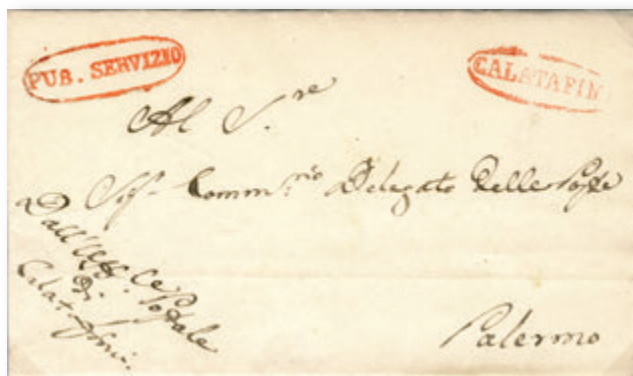 PUB. SERVIZIO
CALATAFIMI
Al S.re
Sig.r Comm.rio Delegato delle Poste
Dall'Uff.ce Postale
Di
Calatafimi.
Palermo